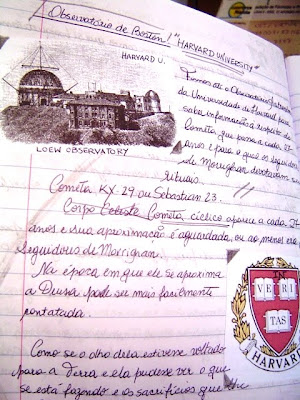 Observatório de Boston! "HARVARD UNIVERSITY"
HARVARD U.
Fomos até o Observatório
da Universidade de Harvard para
saber informações a respeito do
Cometa que passa a cada 27
anos e para o que os seguidores
de Morrighan devotavam
rituais.
LOEW OBSERVATORY
Cometa KX. 29 ou Sebastian 23.
Corpo Celeste Cometa, cíclico aparece a cada 27
anos e sua aproximação é aguardada, ou ao menos era
Seguidores de Morrigran.
Na época em que ele se aproxima
a Deusa pode ser mais facilmente
contatada.
VE RI
TAS
HARVARD
Como se o olho dela estivesse voltado
para a Terra e ela pudesse ver o que
se está fazendo e os sacrifícios que